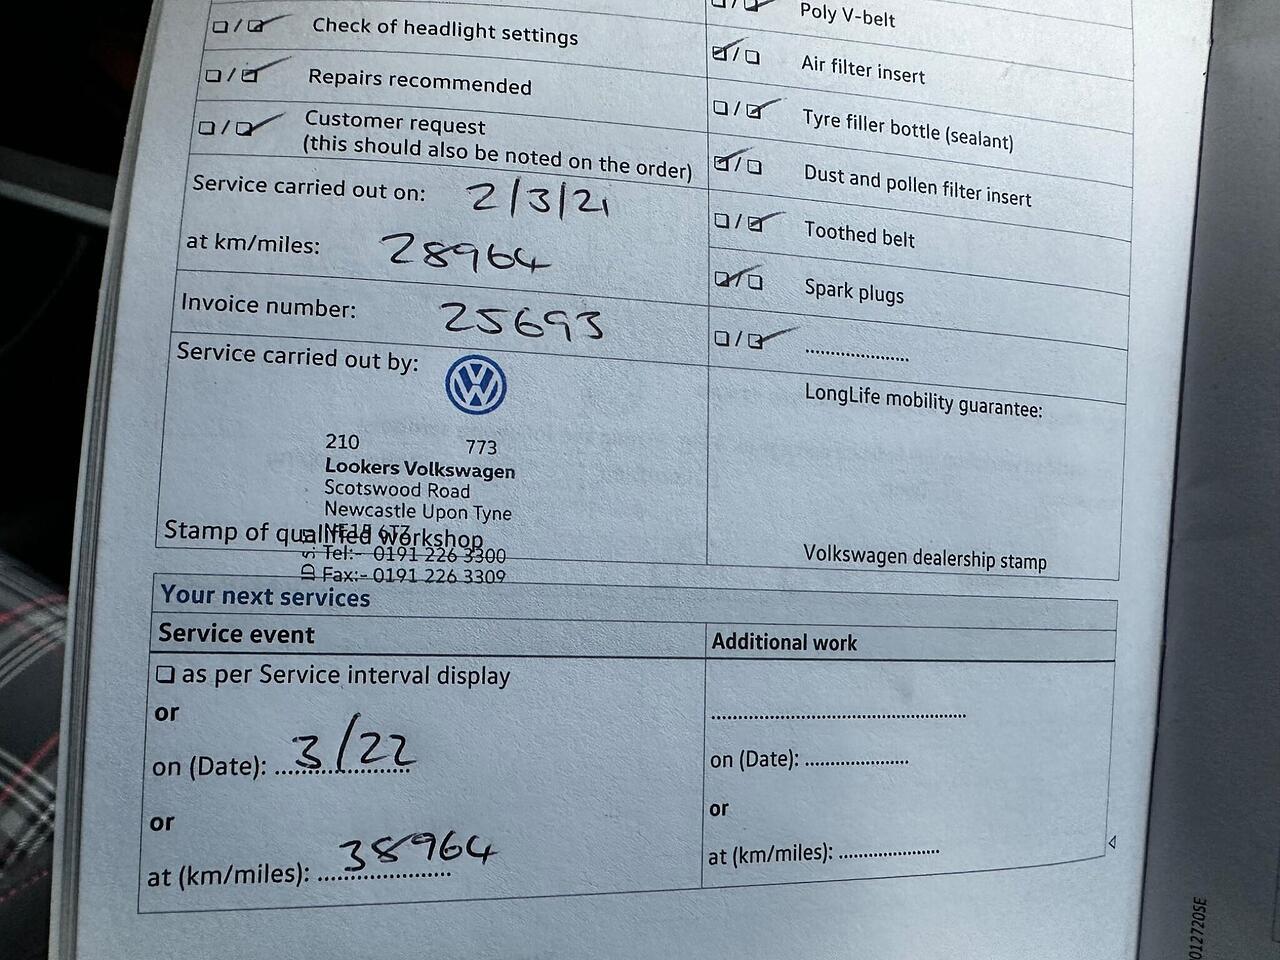 ❏ / ❏ Check of headlight settings
❏ / ❏ Repairs recommended
❏ / ❏ Customer request
(this should also be noted on the order)
Service carried out on: 2/3/21
at km/miles: 28964
Invoice number: 25693
Service carried out by:
210 773
Lookers Volkswagen
Scotswood Road
Newcastle Upon Tyne
NE15 6TZ
Stamp of qualified workshop
Tel:- 0191 226 3300
Fax:- 0191 226 3309
❏ / ❏ Poly V-belt
❏ / ❏ Air filter insert
❏ / ❏ Tyre filler bottle (sealant)
❏ / ❏ Dust and pollen filter insert
❏ / ❏ Toothed belt
❏ / ❏ Spark plugs
❏ / ❏ .....................
LongLife mobility guarantee:
Volkswagen dealership stamp
Your next services
Service event
❏ as per Service interval display
or
on (Date): 3/22
or
at (km/miles): 38964
Additional work
..................................................
on (Date): .....................
or
at (km/miles): ....................
012720SE